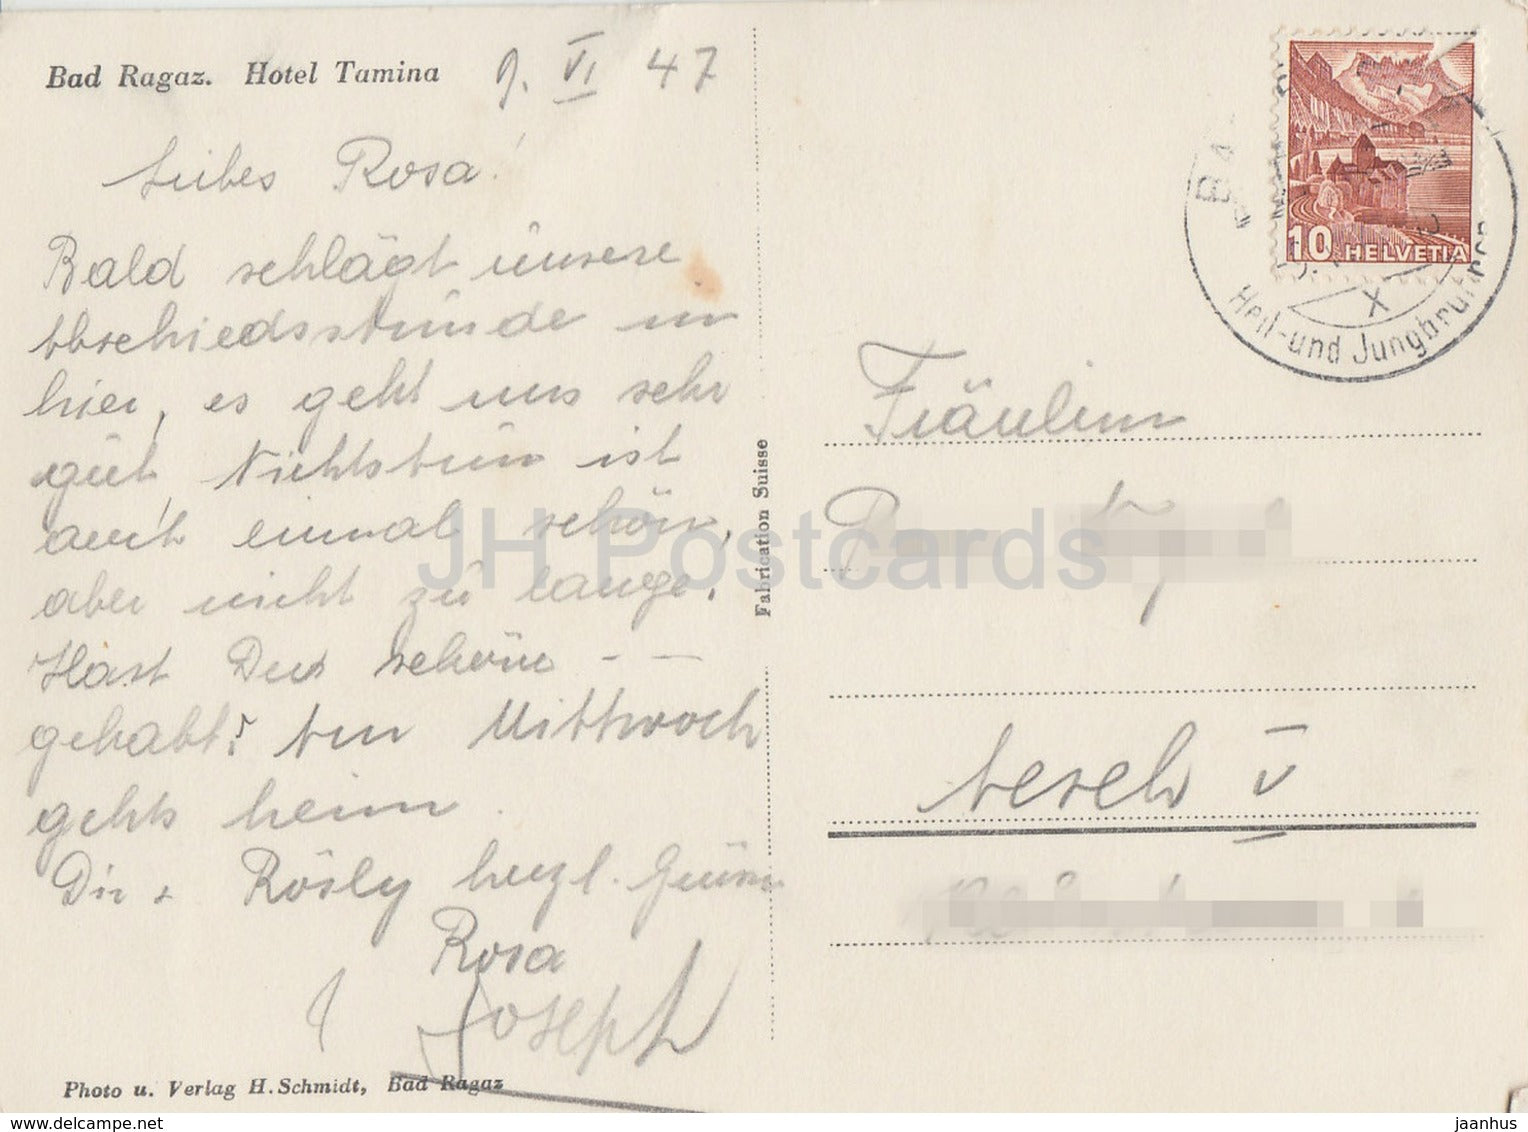 Bad Ragaz. Hotel Tamina
9. VI 47
Liebes Rosa!
Bald schlägt ünsere
Abschiedsstünde von
hier, es geht uns sehr
gut, Nichtstün ist
auch einmal schön,
aber nicht zü lange.
Hast Du schön - -
gehabt? Am Mittwoch
gehts heim.
Dir + Rösly herzl. Grüsse
Rosa
Joseph
Photo u. Verlag H. Schmidt, Bad Ragaz
Fabrication Suisse
10 HELVETIA
Heil- und Jungbrunnen
Fräulein
Aesch
JH Postcards
www.hippostcard.com
jaanhus